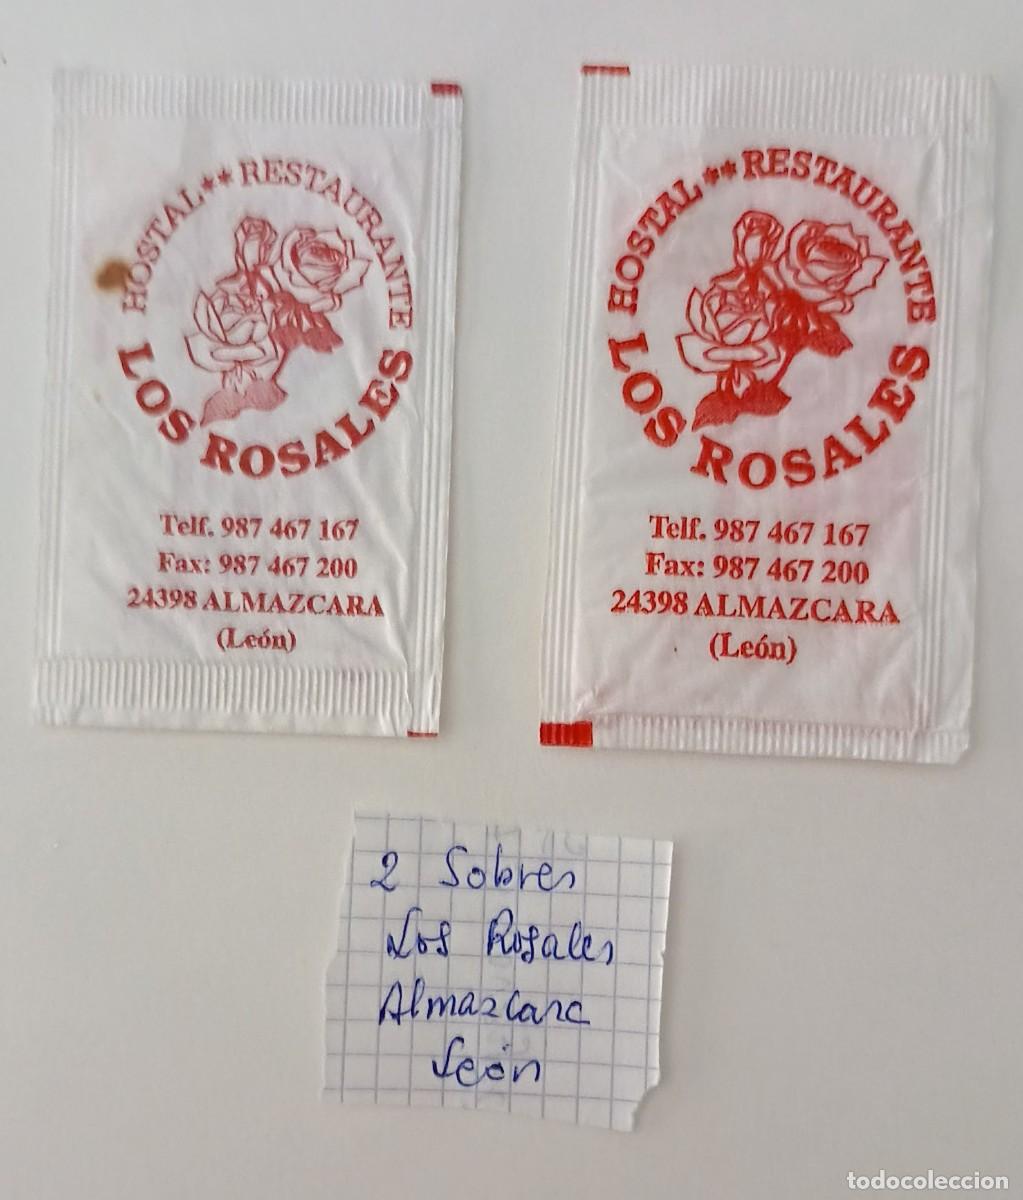 HOSTAL ** RESTAURANTE
LOS ROSALES
Telf. 987 467 167
Fax: 987 467 200
24398 ALMAZCARA
(León)
HOSTAL ** RESTAURANTE
LOS ROSALES
Telf. 987 467 167
Fax: 987 467 200
24398 ALMAZCARA
(León)
2 Sobres
Los Rosales
Almazcara
León
todocoleccion